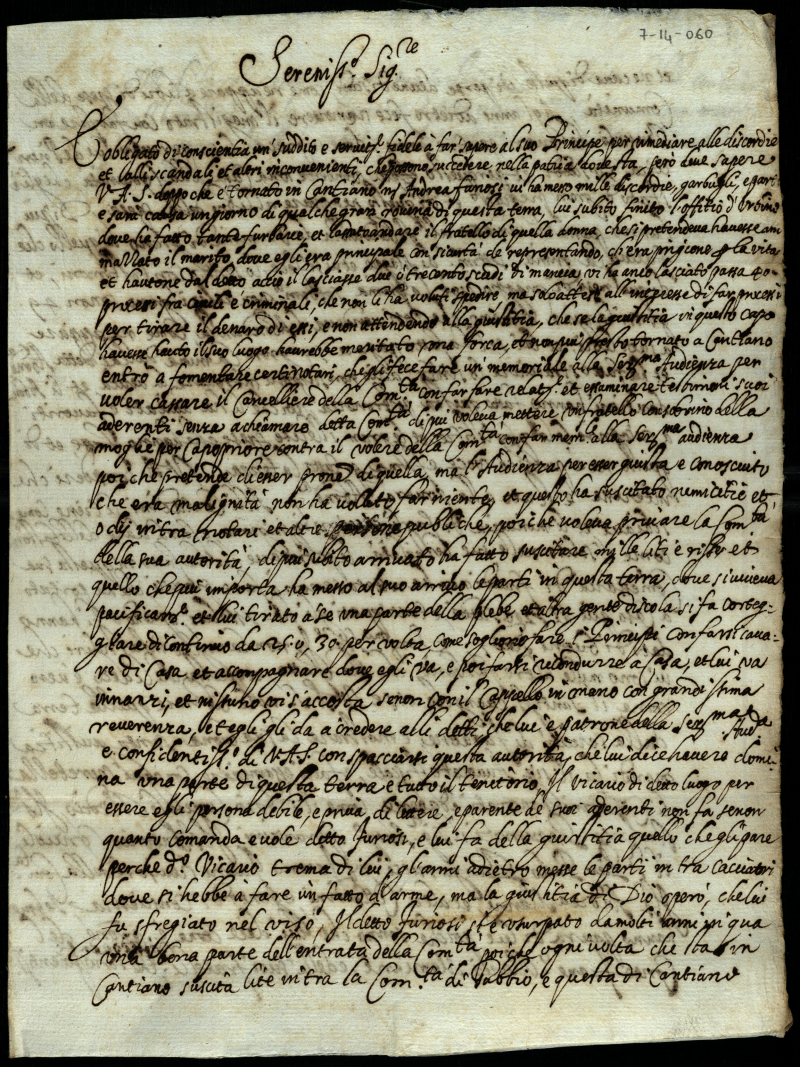 7-14-060
Sereniss.º Sig.re
È obligato di conscientia un suddito e servit.e fidele à far sapere al suo Principe per rimediare alle discordie
et alli scandali et altri inconvenienti, che possono succedere nella patria dove sta, però deve sapere
V. A. S. doppo che è tornato in Cantiano ms Andrea furiosi vi ha messo mille discordie, garbugli, e parti
e sarà causa un giorno di qualche gran rovina di questa terra, lui subito finito l'offitio d'Urbino
dove ha fatto tante furbarie, et lassato andare il fratello di quella donna, che si pretendeva havesse am
mazzato il marito, dove egli era principale con sicurtà de representando, ch'era prigione p la vita
et havutone dal detto acciò il lasciasse due ò trecento scudi di mancia, vi ha anco lasciato passa 40
processi fra civile e criminali, che non li ha voluti spedire, ma solo attese all'interesse di far processi
per tirare il denaro di essi, e non attendendo alla giustitia, che se la giustitia in questo capo
havesse hauto il suo luogo haurebbe meritato una forca, et non più presto tornato a Cantiano
entrò a fomentare certi notari, che gli fece fare un memoriale alla Ser.ma Audienza per
voler cassare il Cancelliere della Com.tà con far fare relat.e et essaminare testimoni suoi
aderenti senza achiamare detta Com.tà di più voleva mettere un fratello consobrino della
moglie per Capopriore contra il volere della Com.tà con far mem.le alla Ser.ma audienza
poiche pretende di esser prone di quella, ma l'Audienza per esser giusta e conosciuto
che era malignità non ha voluto far niente, et questo ha suscitato nimicitie et
odij intra i notari et altre persone publiche, poiche voleva privare la Com.tà
della sua autorità, di più subito arrivato ha fatto suscitare mille liti e risse et
quello che più importa ha messo al suo arrivo le parti in questa terra, dove si viveva
pacificam.te et lui tirato a se una parte della plebe et altra gente discola si fa corteg-
giare di continuo da 25. o, 30. per volta, come sogliono fare i Principi con farsi cava-
re di Casa, et accompagnare dove egli va, e poi farsi ricondurre a Casa, et lui va
innanzi, et nissuno vi s'accosta senon con il Cappello in meno con grandissima
reverenza, et egli gli da à credere alli detti che lui è patrone della Ser.ma Aud.a
e confidentiss.º di V. A. S. con spacciarsi questa autorità, che lui dice havere domi-
na una parte di questa terra e tutto il territorio, Il vicario di detto luogo per
essere egli persona debile, e priva di lettere, e parente de suoi aderenti non fa senon
quanto comanda e vole detto furiosi, e lui fa della giustitia quello che gli pare
perche d.º Vicario trema di lui, gl'anni adietro messe le parti intra cacciatori
dove si hebbe à fare un fatto d'arme, ma la giustitia di Dio operò, che lui
fu sfregiato nel viso, Il detto furiosi si è usurpato da molti anni in qua
una bona parte dell'entrata della Com.tà poiche ogni volta che sta in
Cantiano suscita lite intra la Com.tà di Gubbio, e questa di Cantiano